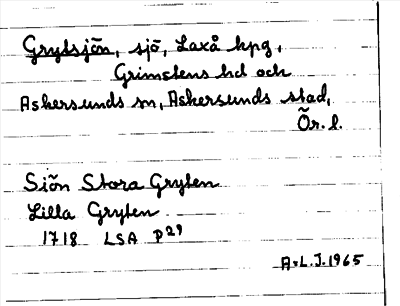 Grytsjön, sjö, Laxå kpg,
Grimstens hd och
Askersunds sn, Askersunds stad,
Ör. l.
Sjön Stora Gryten
Lilla Gryten
1718 LSA P29
A-L.J.1965